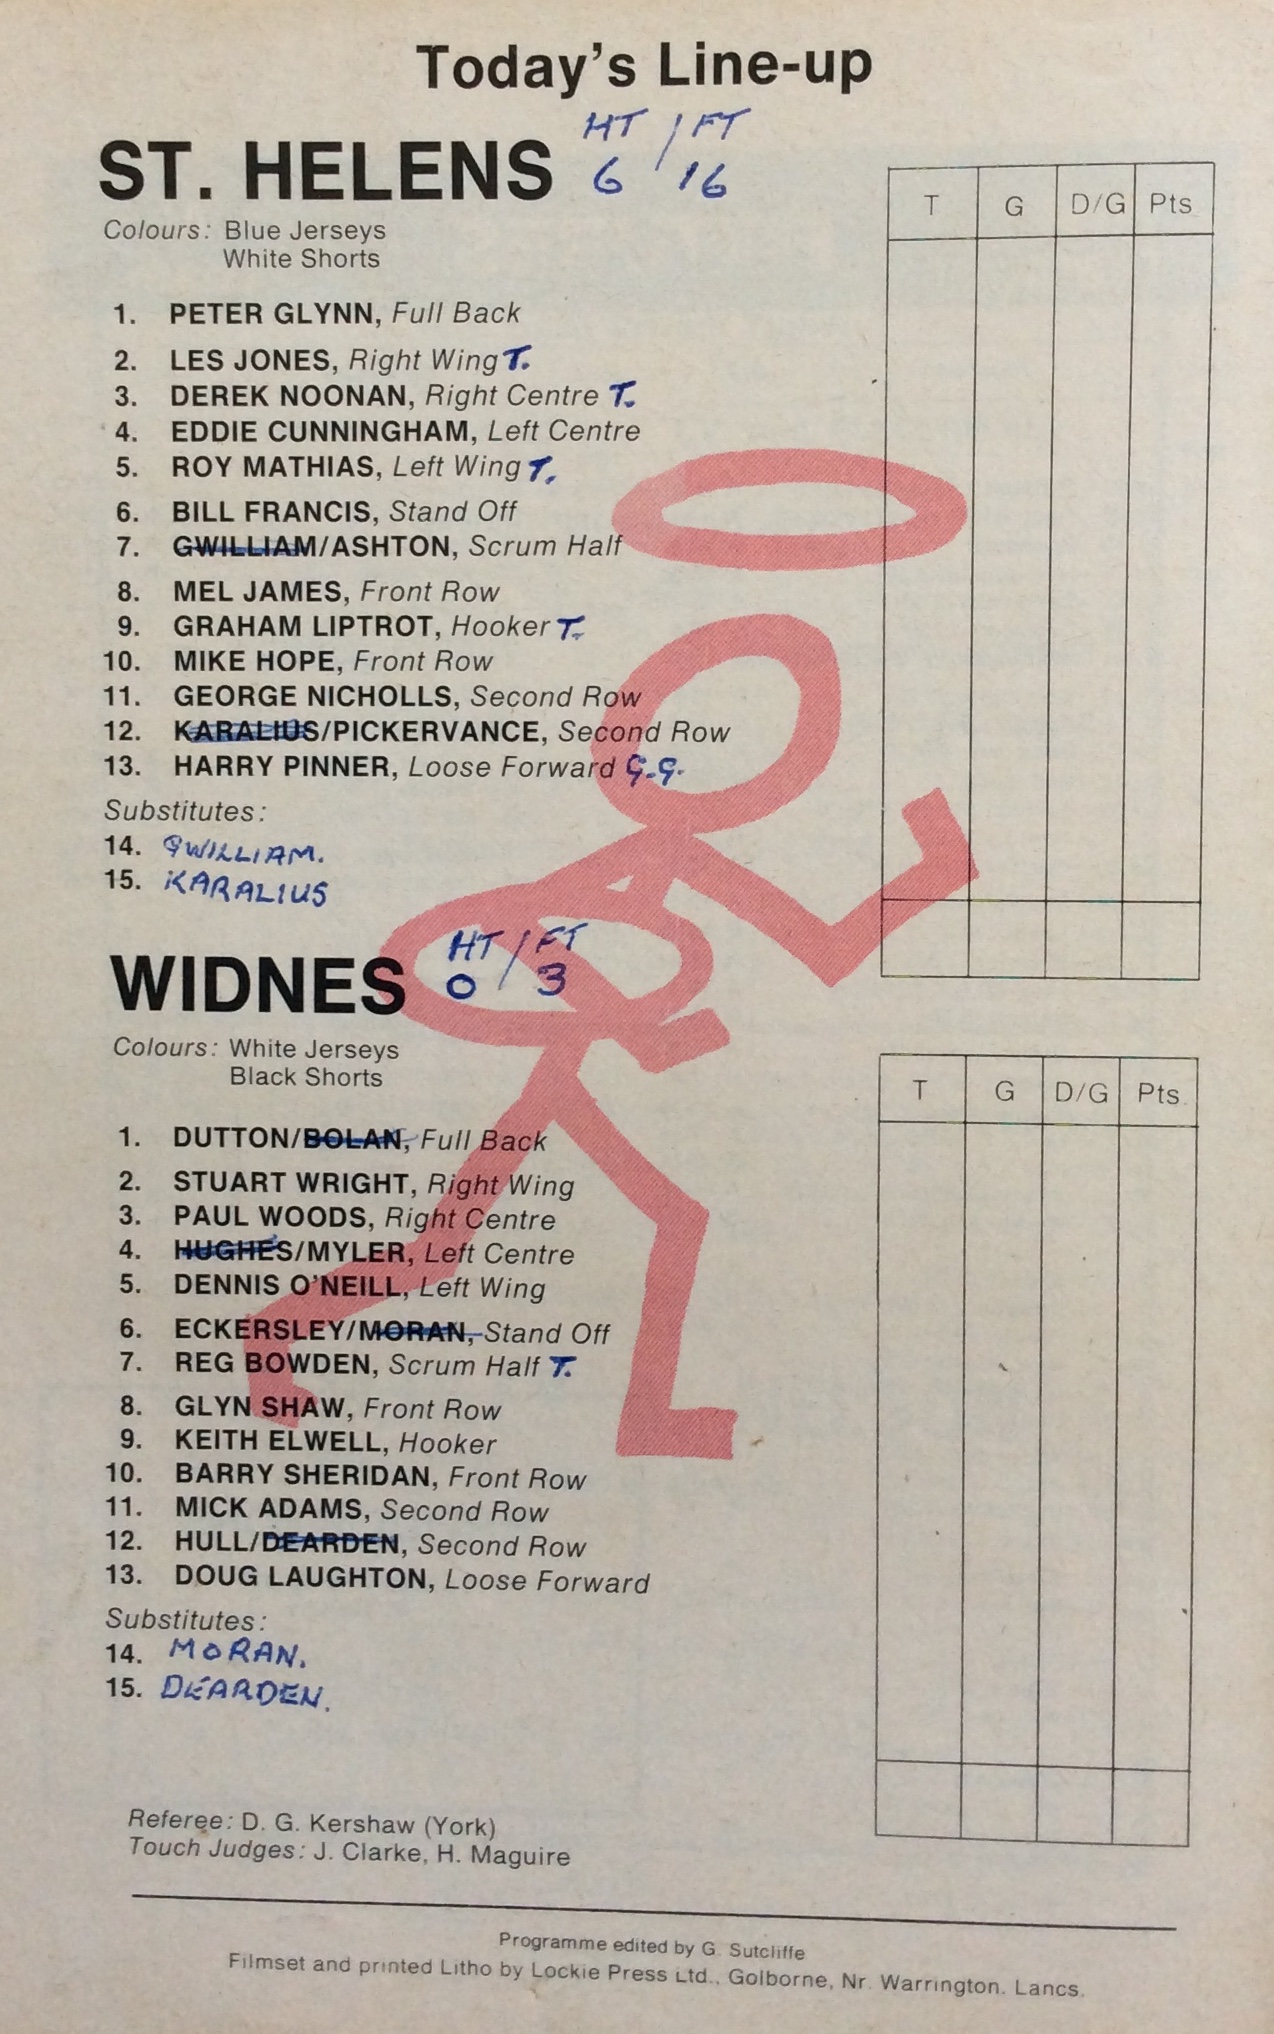 Today's Line-up
ST. HELENS HT / FT
6 16
Colours: Blue Jerseys
White Shorts
T G D/G Pts
1. PETER GLYNN, Full Back
2. LES JONES, Right Wing T.
3. DEREK NOONAN, Right Centre T.
4. EDDIE CUNNINGHAM, Left Centre
5. ROY MATHIAS, Left Wing T.
6. BILL FRANCIS, Stand Off
7. GWILLIAM/ASHTON, Scrum Half
8. MEL JAMES, Front Row
9. GRAHAM LIPTROT, Hooker T.
10. MIKE HOPE, Front Row
11. GEORGE NICHOLLS, Second Row
12. KARALIUS/PICKERVANCE, Second Row
13. HARRY PINNER, Loose Forward G.G.
Substitutes:
14. GWILLIAM.
15. KARALIUS
WIDNES HT / FT
0 3
Colours: White Jerseys
Black Shorts
T G D/G Pts.
1. DUTTON/BOLAN, Full Back
2. STUART WRIGHT, Right Wing
3. PAUL WOODS, Right Centre
4. HUGHES/MYLER, Left Centre
5. DENNIS O'NEILL, Left Wing
6. ECKERSLEY/MORAN, Stand Off
7. REG BOWDEN, Scrum Half T.
8. GLYN SHAW, Front Row
9. KEITH ELWELL, Hooker
10. BARRY SHERIDAN, Front Row
11. MICK ADAMS, Second Row
12. HULL/DEARDEN, Second Row
13. DOUG LAUGHTON, Loose Forward
Substitutes:
14. MORAN.
15. DEARDEN.
Referee: D. G. Kershaw (York)
Touch Judges: J. Clarke, H. Maguire
Programme edited by G. Sutcliffe
Filmset and printed Litho by Lockie Press Ltd., Golborne, Nr. Warrington. Lancs.